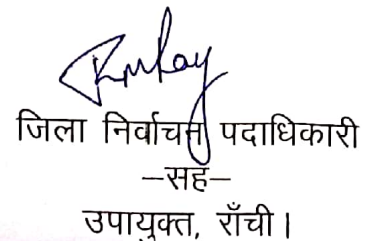 जिला निर्वाचन पदाधिकारी
–सह–
उपायुक्त, राँची।